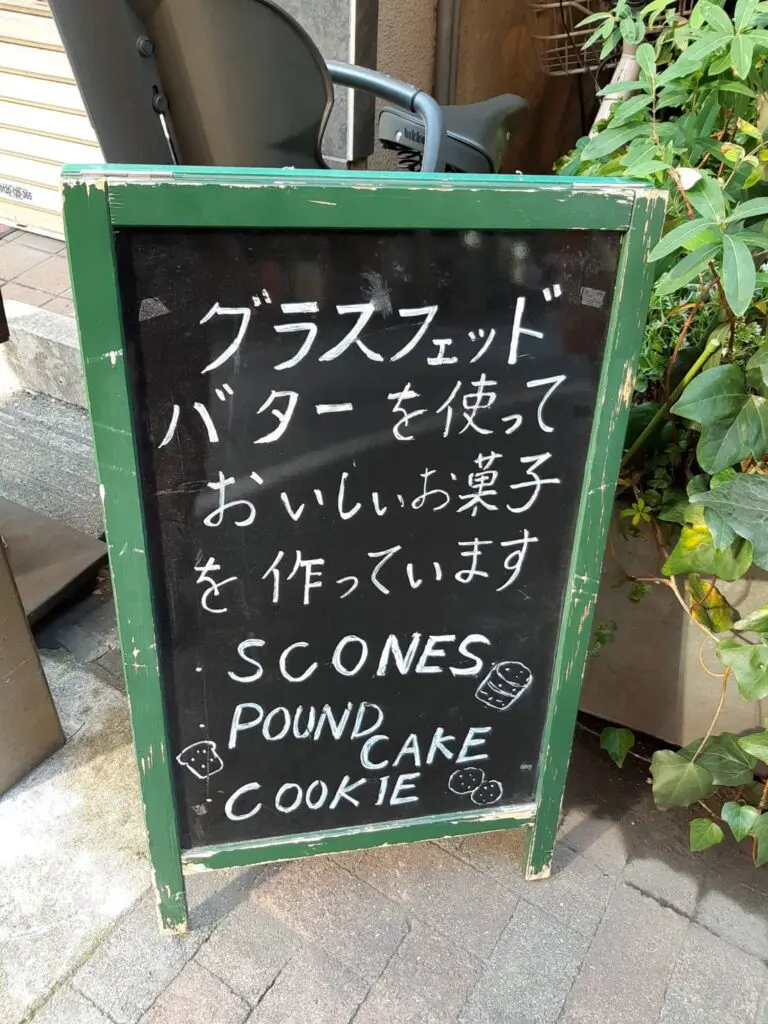 グラスフェッド
バターを使って
おいしいお菓子
を作っています
SCONES
POUND
CAKE
COOKIE